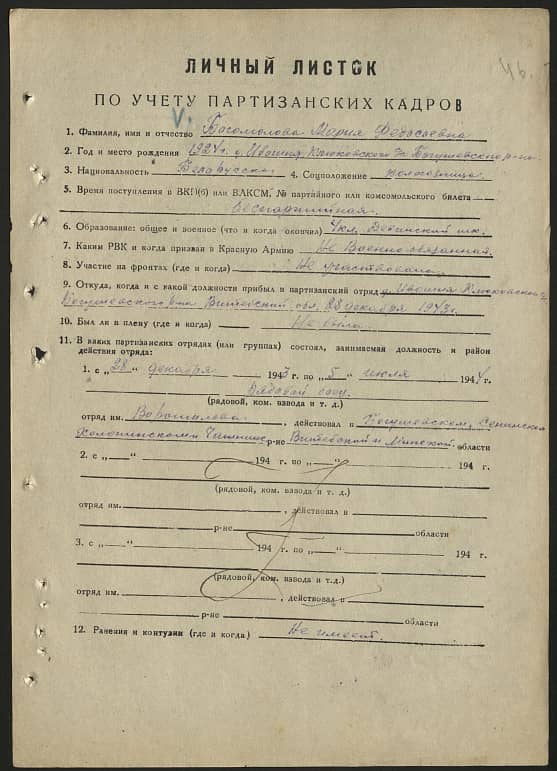 46.
ЛИЧНЫЙ ЛИСТОК
ПО УЧЕТУ ПАРТИЗАНСКИХ КАДРОВ
V
1. Фамилия, имя и отчество Богомолова Мария Федосьевна
2. Год и место рождения 1924 г. д. Ивошня Клюковского Богушевского р-на
3. Национальность Беларусска 4. Соцположение
5. Время поступления в ВКП(б) или ВЛКСМ, № партийного или комсомольского билета
Беспартийная.
6. Образование: общее и военное (что и когда окончил) 4 кл.
7. Каким РВК и когда призван в Красную Армию Не Военно-обязанная.
8. Участие на фронтах (где и когда) Не участвовала
9. Откуда, когда и с какой должности прибыл в партизанский отряд д. Ивошня Клюковского
Богушевского р-на Витебской обл. 28 декабря 1943 г.
10. Был ли в плену (где и когда) Не была.
11. В каких партизанских отрядах (или группах) состоял, занимаемая должность и район
действия отряда:
1. с „28" декабря 1943 г. по „5" июля 1944 г.
Рядовой
(рядовой, ком. взвода и т. д.)
отряд им. Ворошилова, действовал в Богушевском, Сенинском
Холопинском р-не Витебской и Минской области
2. с „ " 194 г. по „ " 194 г.
(рядовой, ком. взвода и т. д.)
отряд им. , действовал в
р-не области
3. с „ " 194 г. по „ " 194 г.
(рядовой, ком. взвода и т.д.)
отряд им. , действовал в
р-не области
12. Ранения и контузии (где и когда) Не имеет.